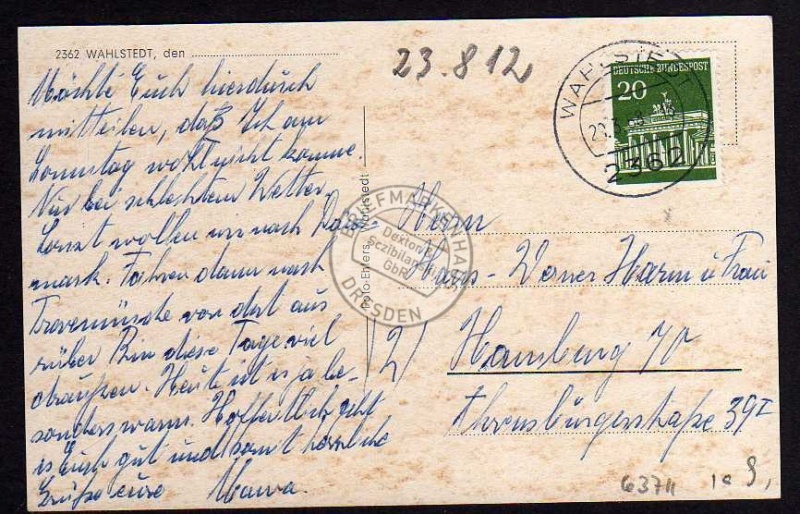 2362 WAHLSTEDT, den
23.8 12
WAHLSTEDT
2362
DEUTSCHE BUNDESPOST
20
Möchte Euch hierdurch
mitteilen, daß Ich am
Sonntag wohl nicht komme.
Nur bei schlechtem Wetter.
Sonst wollen wir nach Däne-
mark. Fahren dann nach
Travemünde von dort aus
rüber Bin diese Tage viel
draußen. Heute ist es ja be-
sonders warm. Hoffentlich geht
es Euch gut und somit herzliche
Grüße eure
Foto-Ehlers, Wahlstedt
BRIEFMARKENHAUS
DRESDEN
Dexton &
Sczibilanski
GbR
Herrn
Hans-Werner Harm u Frau
(2) Hamburg 70
Ahrensburgerstraße 39 I